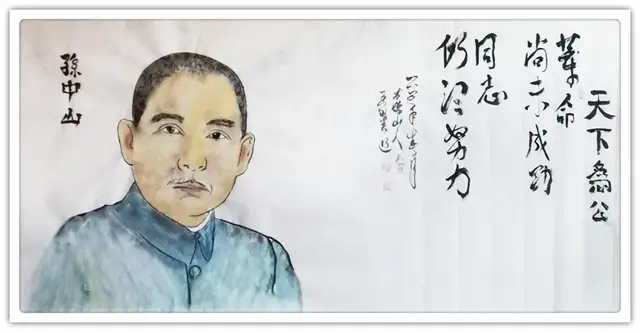 天下為公
革命
尚未成功
同志
仍须努力
孫中山